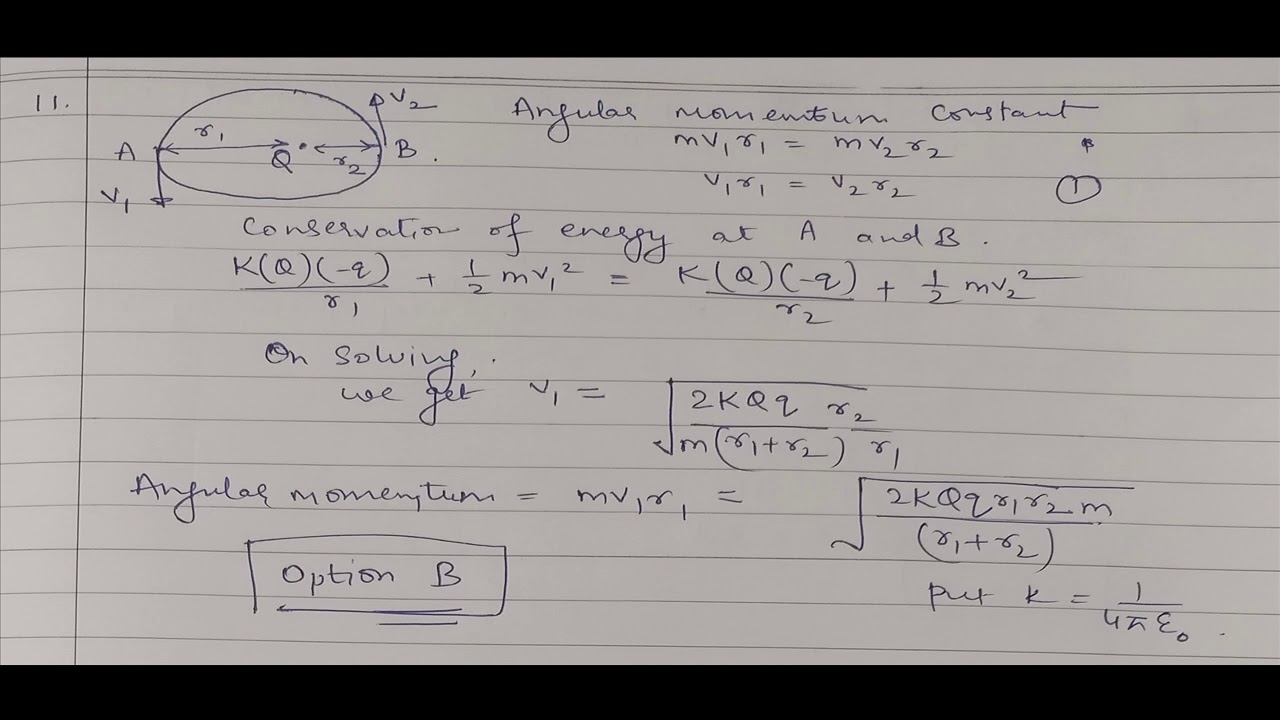 11.
A r₁ Q r₂ B. v₂ v₁
Angular momentum constant
mv₁r₁ = mv₂r₂
v₁r₁ = v₂r₂ ①
Conservation of energy at A and B.
K(Q)(-q)/r₁ + 1/2 mv₁² = K(Q)(-q)/r₂ + 1/2 mv₂²
On solving,
we get v₁ = √(2KQq r₂ / m(r₁+r₂) r₁)
Angular momentum = mv₁r₁ = √(2KQqr₁r₂m / (r₁+r₂))
Option B
Put K = 1/4πε₀.